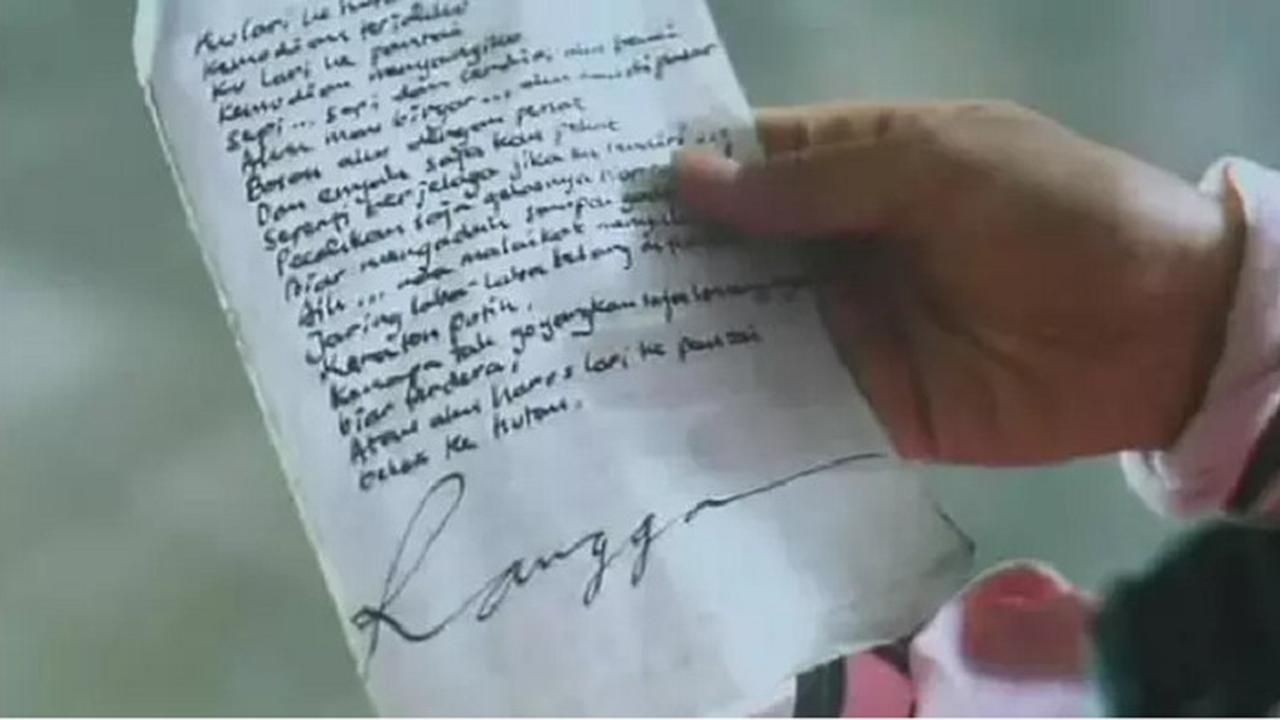 Kulari ke hutan
Kemudian teriakku
Ku lari ke pantai
Kemudian menyanyiku
Sepi... sepi dan sendiri aku benci
Aku mau bingar... aku mau di pasar
Bosan aku dengan penat
Dan enyah saja kau pekat
Seperti berjelaga jika ku sendiri
Pecahkan saja gelasnya
Biar mengaduh sampai
Aih... ada malaikat
Jaring laba-laba belang
Keraton putih.
Kenapa tak goyangkan saja loncengnya
biar terdera,
Atau aku harus lari ke pantai
belok ke hutan.
Rangga